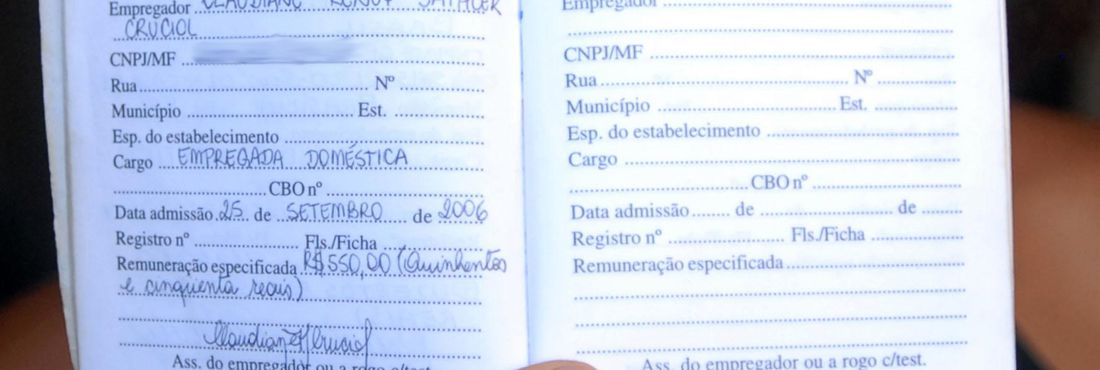 Empregador
CRUCIOL
CNPJ/MF
Rua Nº
Município Est.
Esp. do estabelecimento
Cargo EMPREGADA DOMÉSTICA
CBO nº
Data admissão 25 de SETEMBRO de 2006
Registro nº Fls./Ficha
Remuneração especificada R$ 550,00 (Quinhentos
e cinquenta reais)
Ass. do empregador ou a rogo c/test.
Empregador
CNPJ/MF
Rua Nº
Município Est.
Esp. do estabelecimento
Cargo
CBO nº
Data admissão de de
Registro nº Fls./Ficha
Remuneração especificada
Ass. do empregador ou a rogo c/test.